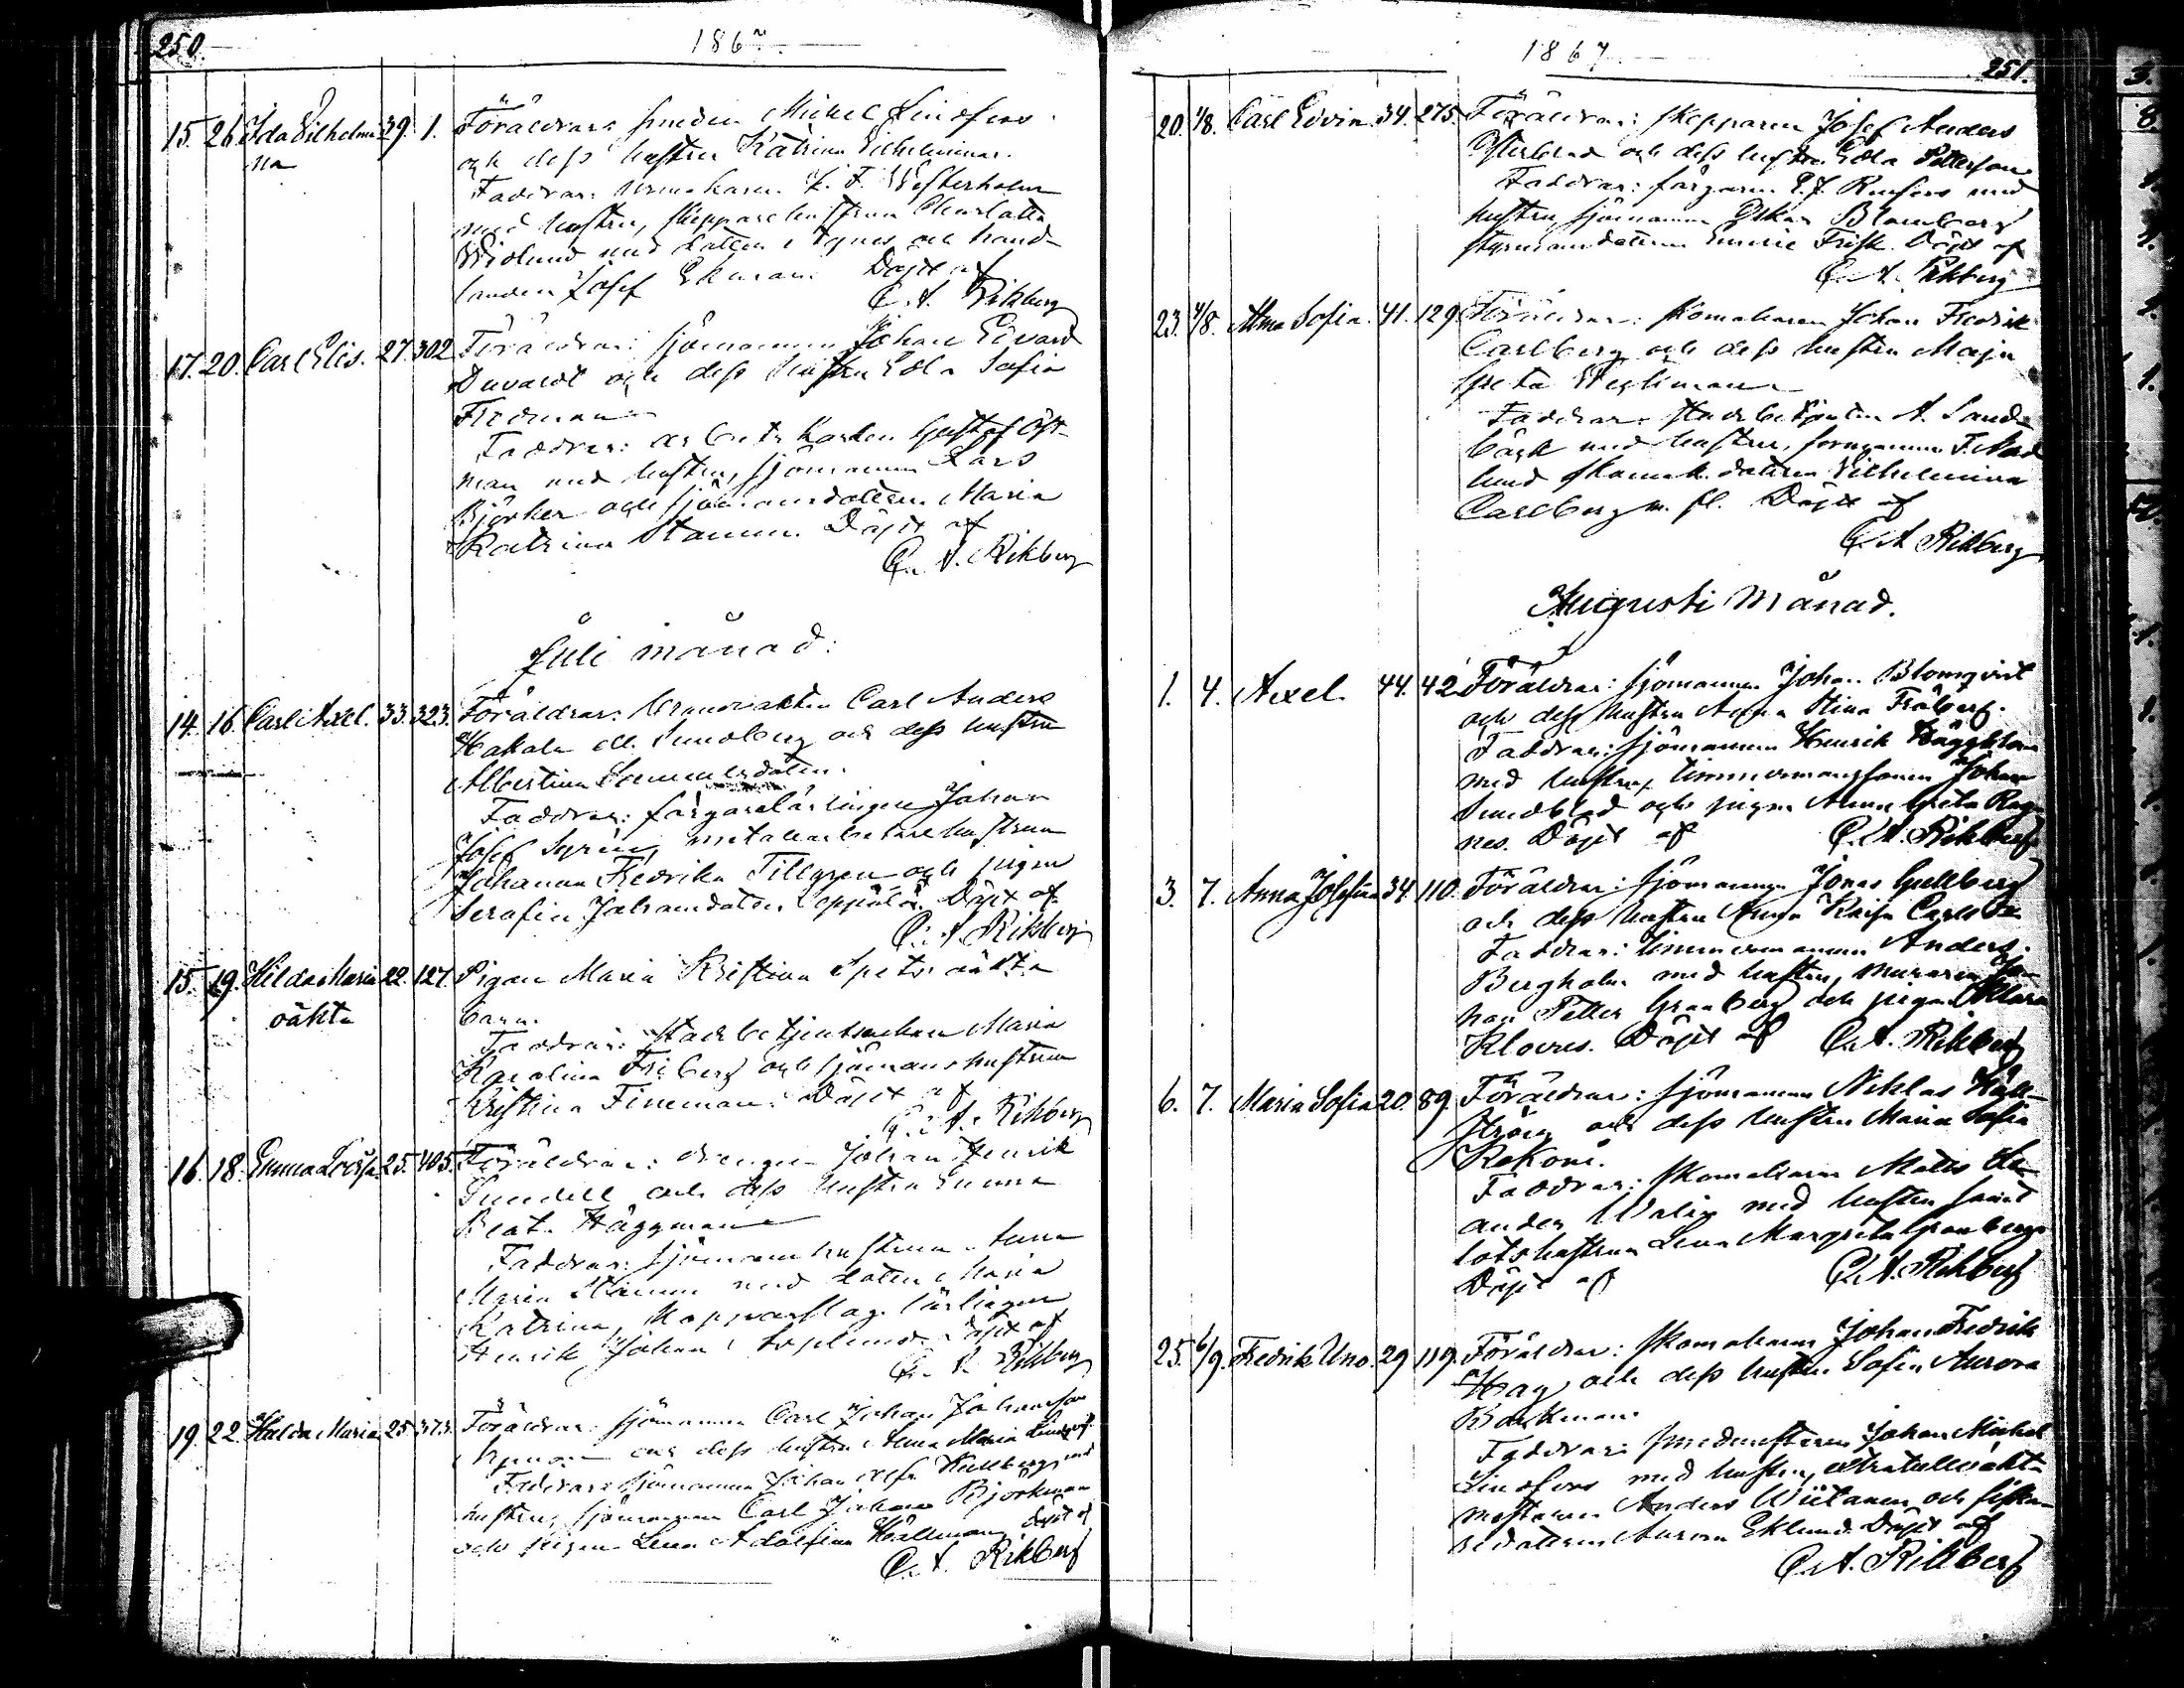 250.
1867.
15. 26. Ida Vilhelmi- 39. 1. Föräldrar: smeden Mickel Lindfors
na och dess hustru Katrina Vilhelmina.
Faddrar: urmakaren F. Westerholm
med hustru, skepparehustrun Charlotta
Widlund med dottern Agnes och hand-
landen Josef Ekman. Döpt af
C. A. Rikberg
17. 20. Carl Elis. 27. 302 Föräldrar: sjömannen Johan Edvard
och dess hustru Edla Sofia
Fredman
Faddrar: arbetskarlen Gustaf Öst-
man med hustru, sjömannen Lars
Björker och sjömansdottern Maria
Katrina Stamm. Döpt af
C. A. Rikberg
Juli månad:
14. 16. Carl Axel. 33. 323. Föräldrar: brandvakten Carl Anders
Hakala ell. Sundberg och dess hustru
Albertina
Faddrar: färgarelärlingen Johan
Josef metallarbetarehustrun
Johanna Fredrika Tillgren och pigan
Serafia Döpt af
C. A. Rikberg
15. 19. Hilda Maria 22. 127. Pigan Maria Kristina oäkta
oäkta barn.
Faddrar: stadsbetjentsenkan Maria
Karolina Friberg och sjömanshustrun
Kristina Fineman. Döpt af
C. A. Rikberg
16. 18. Emma Lovisa 25. 405. Föräldrar: drengen Johan Henrik
Sundell och dess hustru Emma
Beata Häggman
Faddrar: sjömanshustrun Anna
Maria Stamm med dottern Maria
Katrina, kopparslag. lärlingen
Henrik Johan Döpt af
C. A. Rikberg
19. 22. Hulda Maria 25. 373. Föräldrar: sjömannen Carl Johan Johansson
och dess hustru Anna Maria
Faddrar: sjömannen Johan Hallberg med
hustru, sjömannen Carl Johan Björkman
och pigan Lena Adolfina Hällman, döpt af
C. A. Rikberg
1867
251.
20. 1/8. Carl Edvin. 34. 275. Föräldrar: skepparen Josef Anders
Österblad och dess hustru Edla Petterson
Faddrar: färgaren med
hustru, sjömannen Oskar Blomberg
styrmansdottern Emilie Frisk. Döpt af
C. A. Rikberg
23. 4/8. Alma Sofia. 41. 129. Föräldrar: skomakaren Johan Fredrik
Carlberg och dess hustru Maja
Greta
Faddrar: stadsbetjenten A. Sand-
bäck med hustru, F. Nord-
lund skomak. dottern Vilhelmina
Carlberg m. fl. Döpt af
C. A. Rikberg
Augusti Månad.
1. 4. Axel. 44. 42 Föräldrar: sjömannen Johan Blomqvist
och dess hustru Anna Stina Fråberg.
Faddrar: sjömannen Henrik Häggblom
med hustru, timmermanssonen Johan
Sundblad och pigan Anna Greta Rag-
nes. Döpt af C. A. Rikberg
3. 7. Anna Josefina 34. 110. Föräldrar: sjömannen Jonas Gullberg
och dess hustru Anna Kaisa
Faddrar: timmermannen Anders
Bergholm med hustru, muraren Jo-
han Petter Granberg och pigan Klara
Klovus. Döpt af C. A. Rikberg
6. 7. Maria Sofia 20. 89. Föräldrar: sjömannen Niklas Häll-
ström och dess hustru Maria Sofia
Kokoni.
Faddrar: skomakaren Matts
ander med hustru samt
lotshustrun Lena Margreta Granberg.
Döpt af C. A. Rikberg
25. 6/9. Fredrik Uno. 29 119. Föräldrar: skomakaren Johan Fredrik
Hag och dess hustru Sofia Aurora
Backman.
Faddrar: smedmästaren Johan Mickel
Lindfors med hustru,
mästaren Anders Wiitanen och
dottern Aurora Eklund. Döpt af
C. A. Rikberg